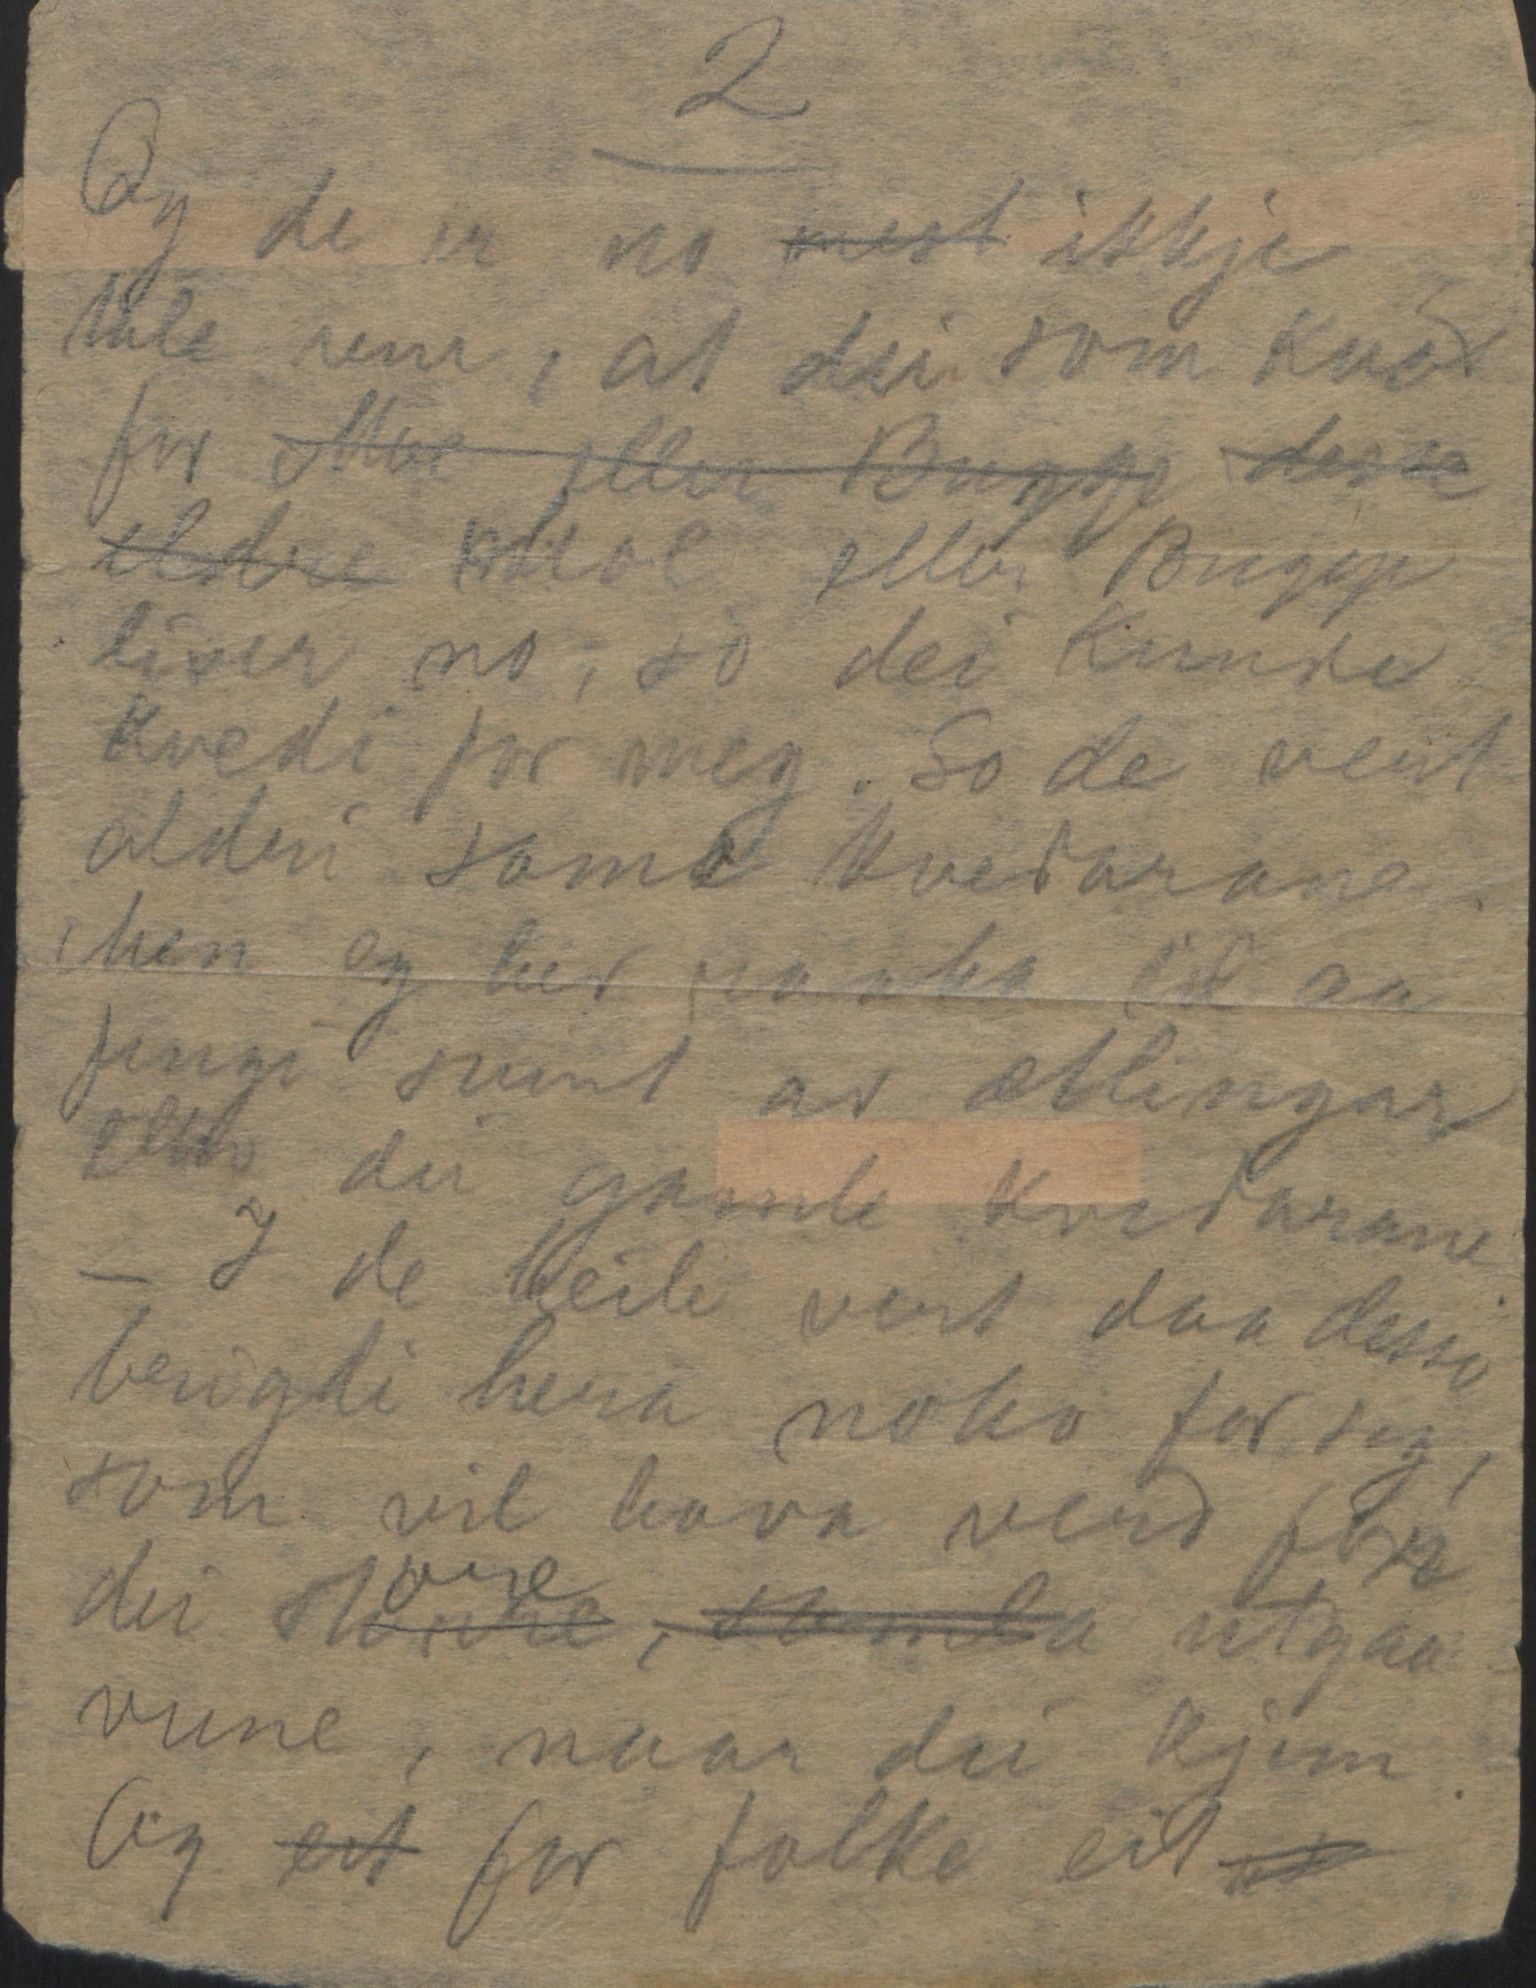 2
Og de er no ~~mest~~ ikkje
tale um, at dei som kvad
for ~~Moe eller Bugge~~ ~~desse~~
~~eldre~~ Moe eller Bugge
liver no, so dei kunde
kvedi for meg. So de vert
alderi same kvedarane.
Men eg her naaka til aa
fengi sumt av ætlingar
dei gamle kvedarane
– I de heile vert daa desse
berigdi hera noko for seg,
som vil hava verd for
dei ~~større~~ store, ~~samla~~ utgaa
vune, naar dei kjem.
Og ~~eit~~ for folke eit